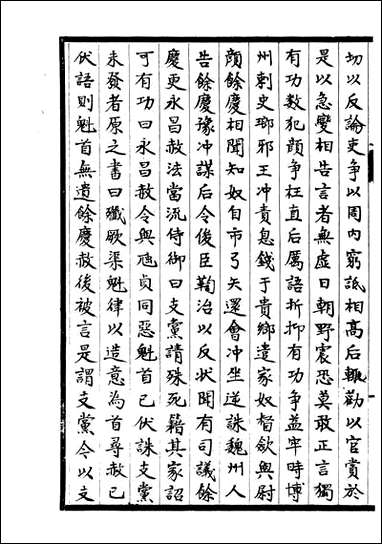 切以反論吏争以周内窮詆相高后輙勸以官賞於
是以急變相告言者無虛日朝野震恐莫敢正言獨
有功数犯顔争枉直后厲語折抑有功争益牢時博
州刺史瑯邪王冲責息錢于貴鄉遣家奴督歛與尉
顔餘慶相聞知奴自市弓矢還會冲坐逆誅魏州人
告餘慶豫冲謀后令俊臣鞠治以反狀聞有司議餘
慶更永昌赦法當流侍御曰支黨請殊死籍其家詔
可有功曰永昌赦令與虺貞同惡魁首已伏誅支黨
未發者原之書曰殲厥渠魁律以造意為首尋赦已
伏語則魁首無遺餘慶赦後被言是謂支黨令以支